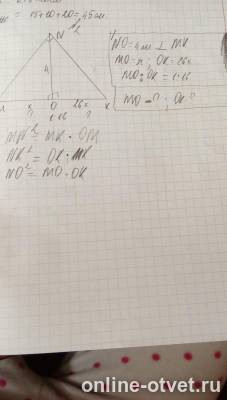 = 15+10+20 = 45 см.
N
4
x O 26x K
1:16
NO = 4 см ⊥ MK
MO = x; OK = 26x
MO:OK = 1:16
MO - ?; OK - ?
MN² = MK · OM
NK² = OK · MK
NO² = MO · OK
online-otvet.ru